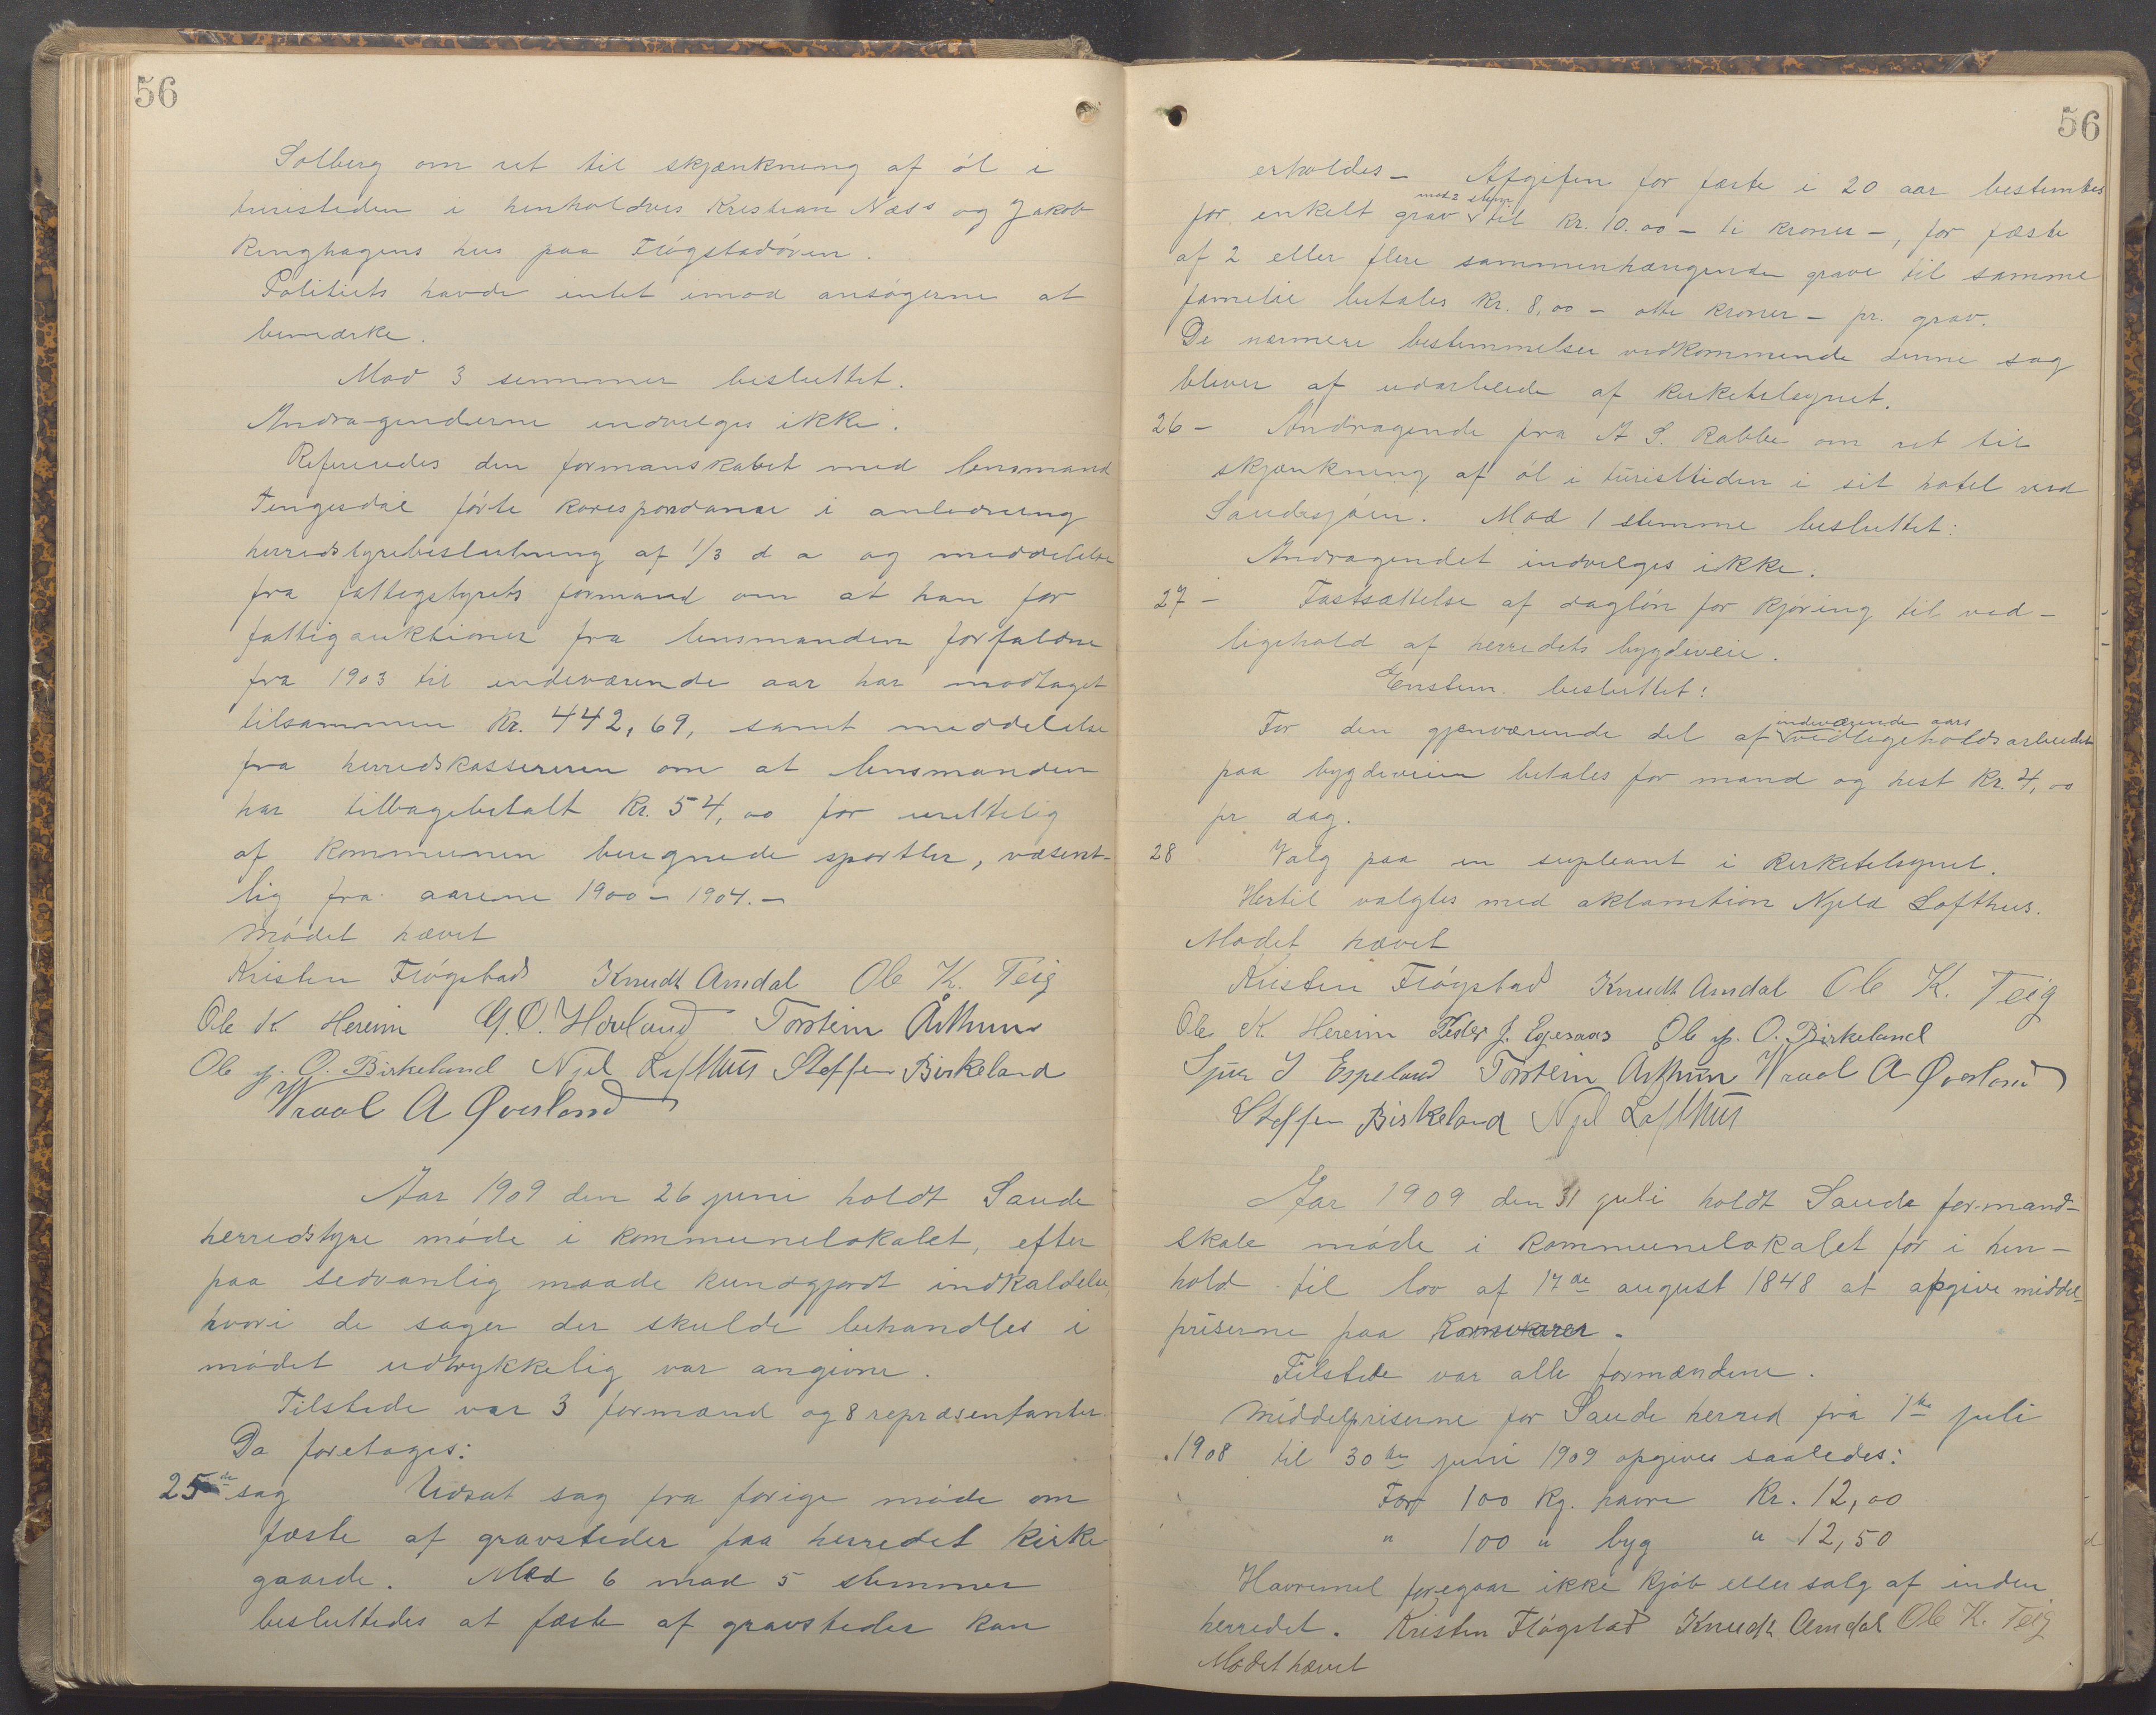 56
Solberg om ret til skjænkning af öl i
turisttiden i henholdsvis Kristian Næss og Jakob
Ringhagens hus paa Flögstadören.
Politiets havde intet imod ansøgerne at
bemærke.
Mod 3 stemmer besluttet.
Andragenderne indvilges ikke.
Refereredes den formanskabet med lensmand
Tengesdal förte korespondanse i anledning
herredstyrebeslutning af 1/3 d a og meddelelse
fra fattigstyrets formand om at han for
fattigauktioner fra lensmanden forfaldne
fra 1903 til indeværende aar har modtaget
tilsammen Kr. 442,69, samt meddelelse
fra herredskassereren om at lensmanden
har tilbagebetalt Kr. 54,00 for urettelig
af kommunen beregnede sportler, væsent-
lig fra aarene 1900 - 1904. -
Mödet hævet
Kristen Flögstad Knudt Amdal Ole K. Teig
Ole K Hereim G. O. Hovland Torstein Århuus
Ole O. Birkeland Njel Lofthus Steffen Birkeland
Wraal A Øverland
Aar 1909 den 26 juni holdt Saude
herredstyre möde i kommunelokalet, efter
paa sedvanlig maade kundgjordt indkaldelse,
hvori de sager der skulde behandles i
mödet udtrykkelig var angivne.
Tilstede var 3 formænd og 8 repræsentanter.
Da foretages:
25de sag Udsat sag fra forige möde om
fæste af gravsteder paa herredet kirke-
gaarde. Med 6 mod 5 stemmer
besluttedes at fæste af gravsteder kan
56
erholdes - Afgiften for fæste i 20 aar bestemtes
med 2 stemr
for enkelt grav til Kr. 10.00 - ti kroner -, for fæste
af 2 eller flere sammenhængende grave til samme
familie betales Kr. 8,00 - otte kroner - pr. grav.
De nærmere bestemmelser vedkommende denne sag
bliver af udarbeide af kirketilsynet.
26 - Andragende fra A S. Rabbe om ret til
skjænkning af öl i turisttiden i sit hotel ved
Saudesjöen. Mod 1 stemme besluttet:
Andragendet indvilges ikke.
27 - Fastsættelse af daglön for kjöring til ved-
ligehold af herredets bygdeveie.
Enstem. besluttet:
indeværende aars
For den gjenværende del af vedligeholdsarbeidet
paa bygdeveien betales for mand og hest Kr. 4,00
pr dag.
28 Valg paa en supleant i kirketilsynet.
Hertil valgtes med aklamtion Njeld Lofthus.
Mödet hævet
Kristen Flögstad Knudt Amdal Ole K. Teig
Ole K. Hereim Peder J. Egesaas Ole O. Birkeland
Sjur J Espeland Torstein Århuus Wraal A Øverland
Steffen Birkeland Njel Lofthus
Aar 1909 den 31 juli holdt Saude formand-
skab möde i kommunelokalet for i hen-
hold til lov af 17de august 1848 at opgive middel-
priserne paa Kornvarer.
Tilstede var alle formændene.
Middelpriserne for Saude herred fra 1ste juli
1908 til 30te juni 1909 opgives saaledes:
For 100 Kg. havre Kr. 12,00
" 100 " byg " 12,50
Havremel foregaar ikke kjöb eller salg af inden
herredet. Kristen Flögstad Knudt Amdal Ole K. Teig
Mødet hævet